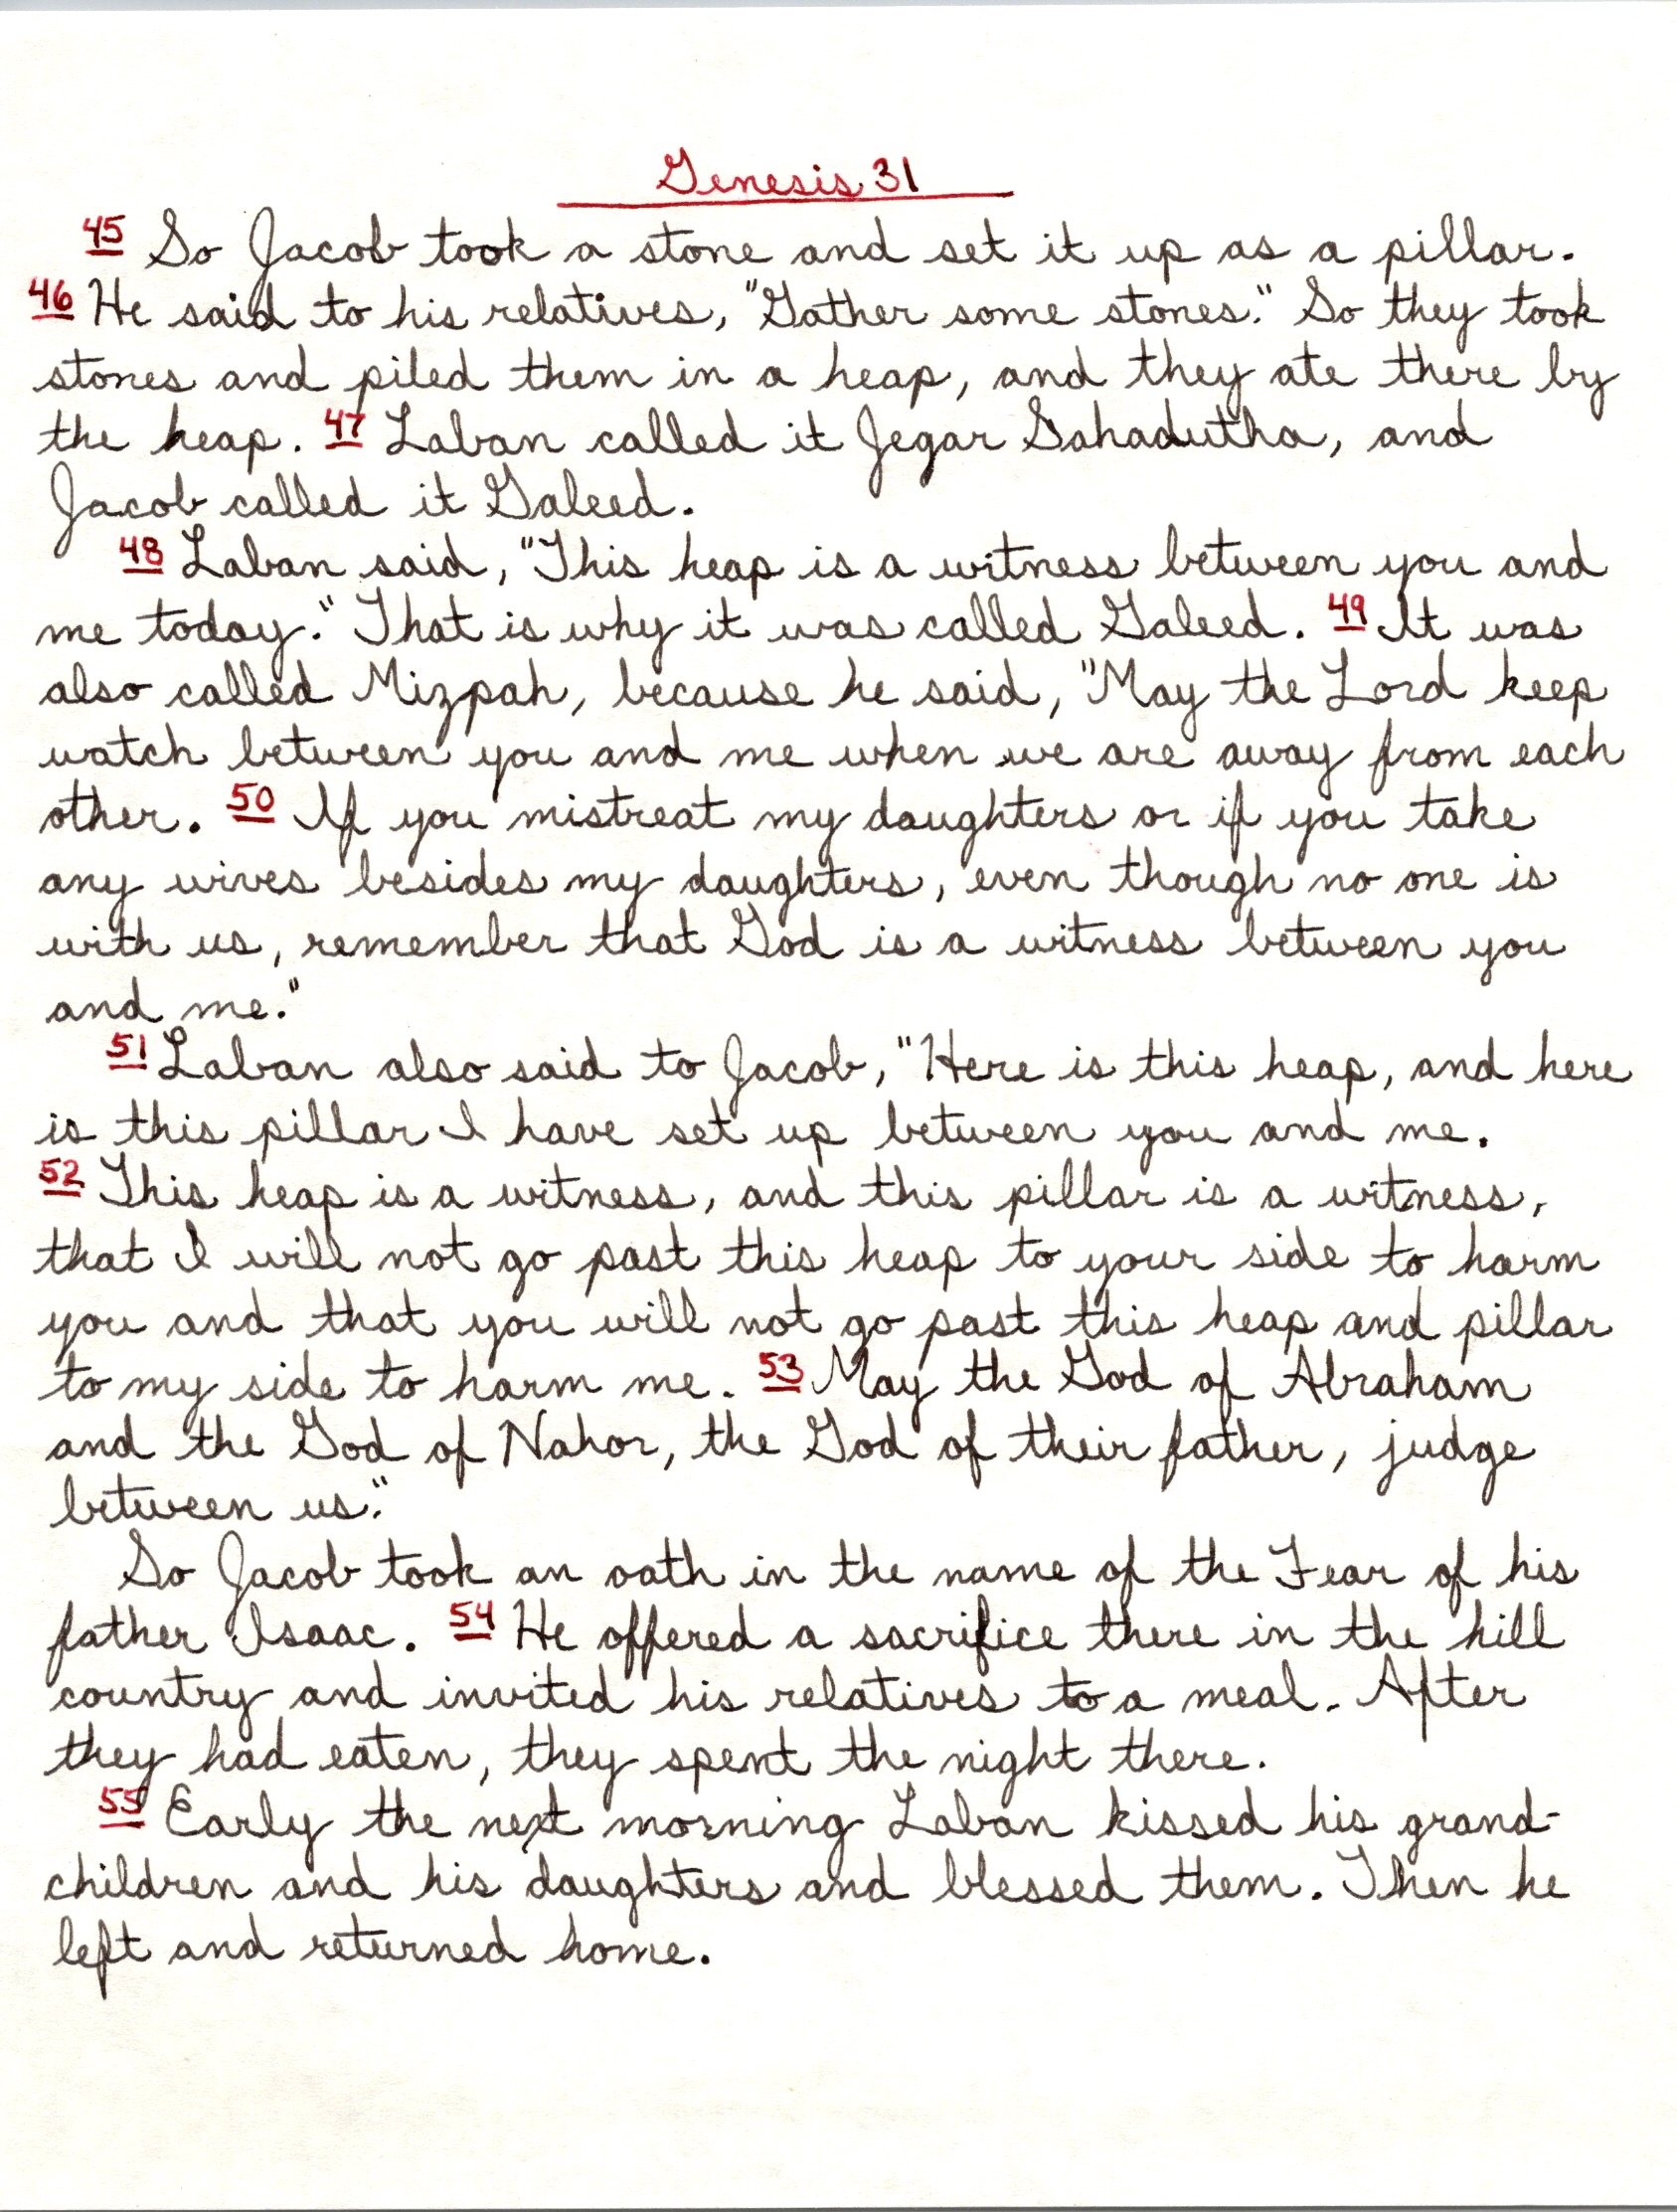 Genesis 31
45 So Jacob took a stone and set it up as a pillar.
46 He said to his relatives, "Gather some stones." So they took
stones and piled them in a heap, and they ate there by
the heap. 47 Laban called it Jegar Sahadutha, and
Jacob called it Galeed.
48 Laban said, "This heap is a witness between you and
me today." That is why it was called Galeed. 49 It was
also called Mizpah, because he said, "May the Lord keep
watch between you and me when we are away from each
other. 50 If you mistreat my daughters or if you take
any wives besides my daughters, even though no one is
with us, remember that God is a witness between you
and me."
51 Laban also said to Jacob, "Here is this heap, and here
is this pillar I have set up between you and me.
52 This heap is a witness, and this pillar is a witness,
that I will not go past this heap to your side to harm
you and that you will not go past this heap and pillar
to my side to harm me. 53 May the God of Abraham
and the God of Nahor, the God of their father, judge
between us."
So Jacob took an oath in the name of the Fear of his
father Isaac. 54 He offered a sacrifice there in the hill
country and invited his relatives to a meal. After
they had eaten, they spent the night there.
55 Early the next morning Laban kissed his grand-
children and his daughters and blessed them. Then he
left and returned home.